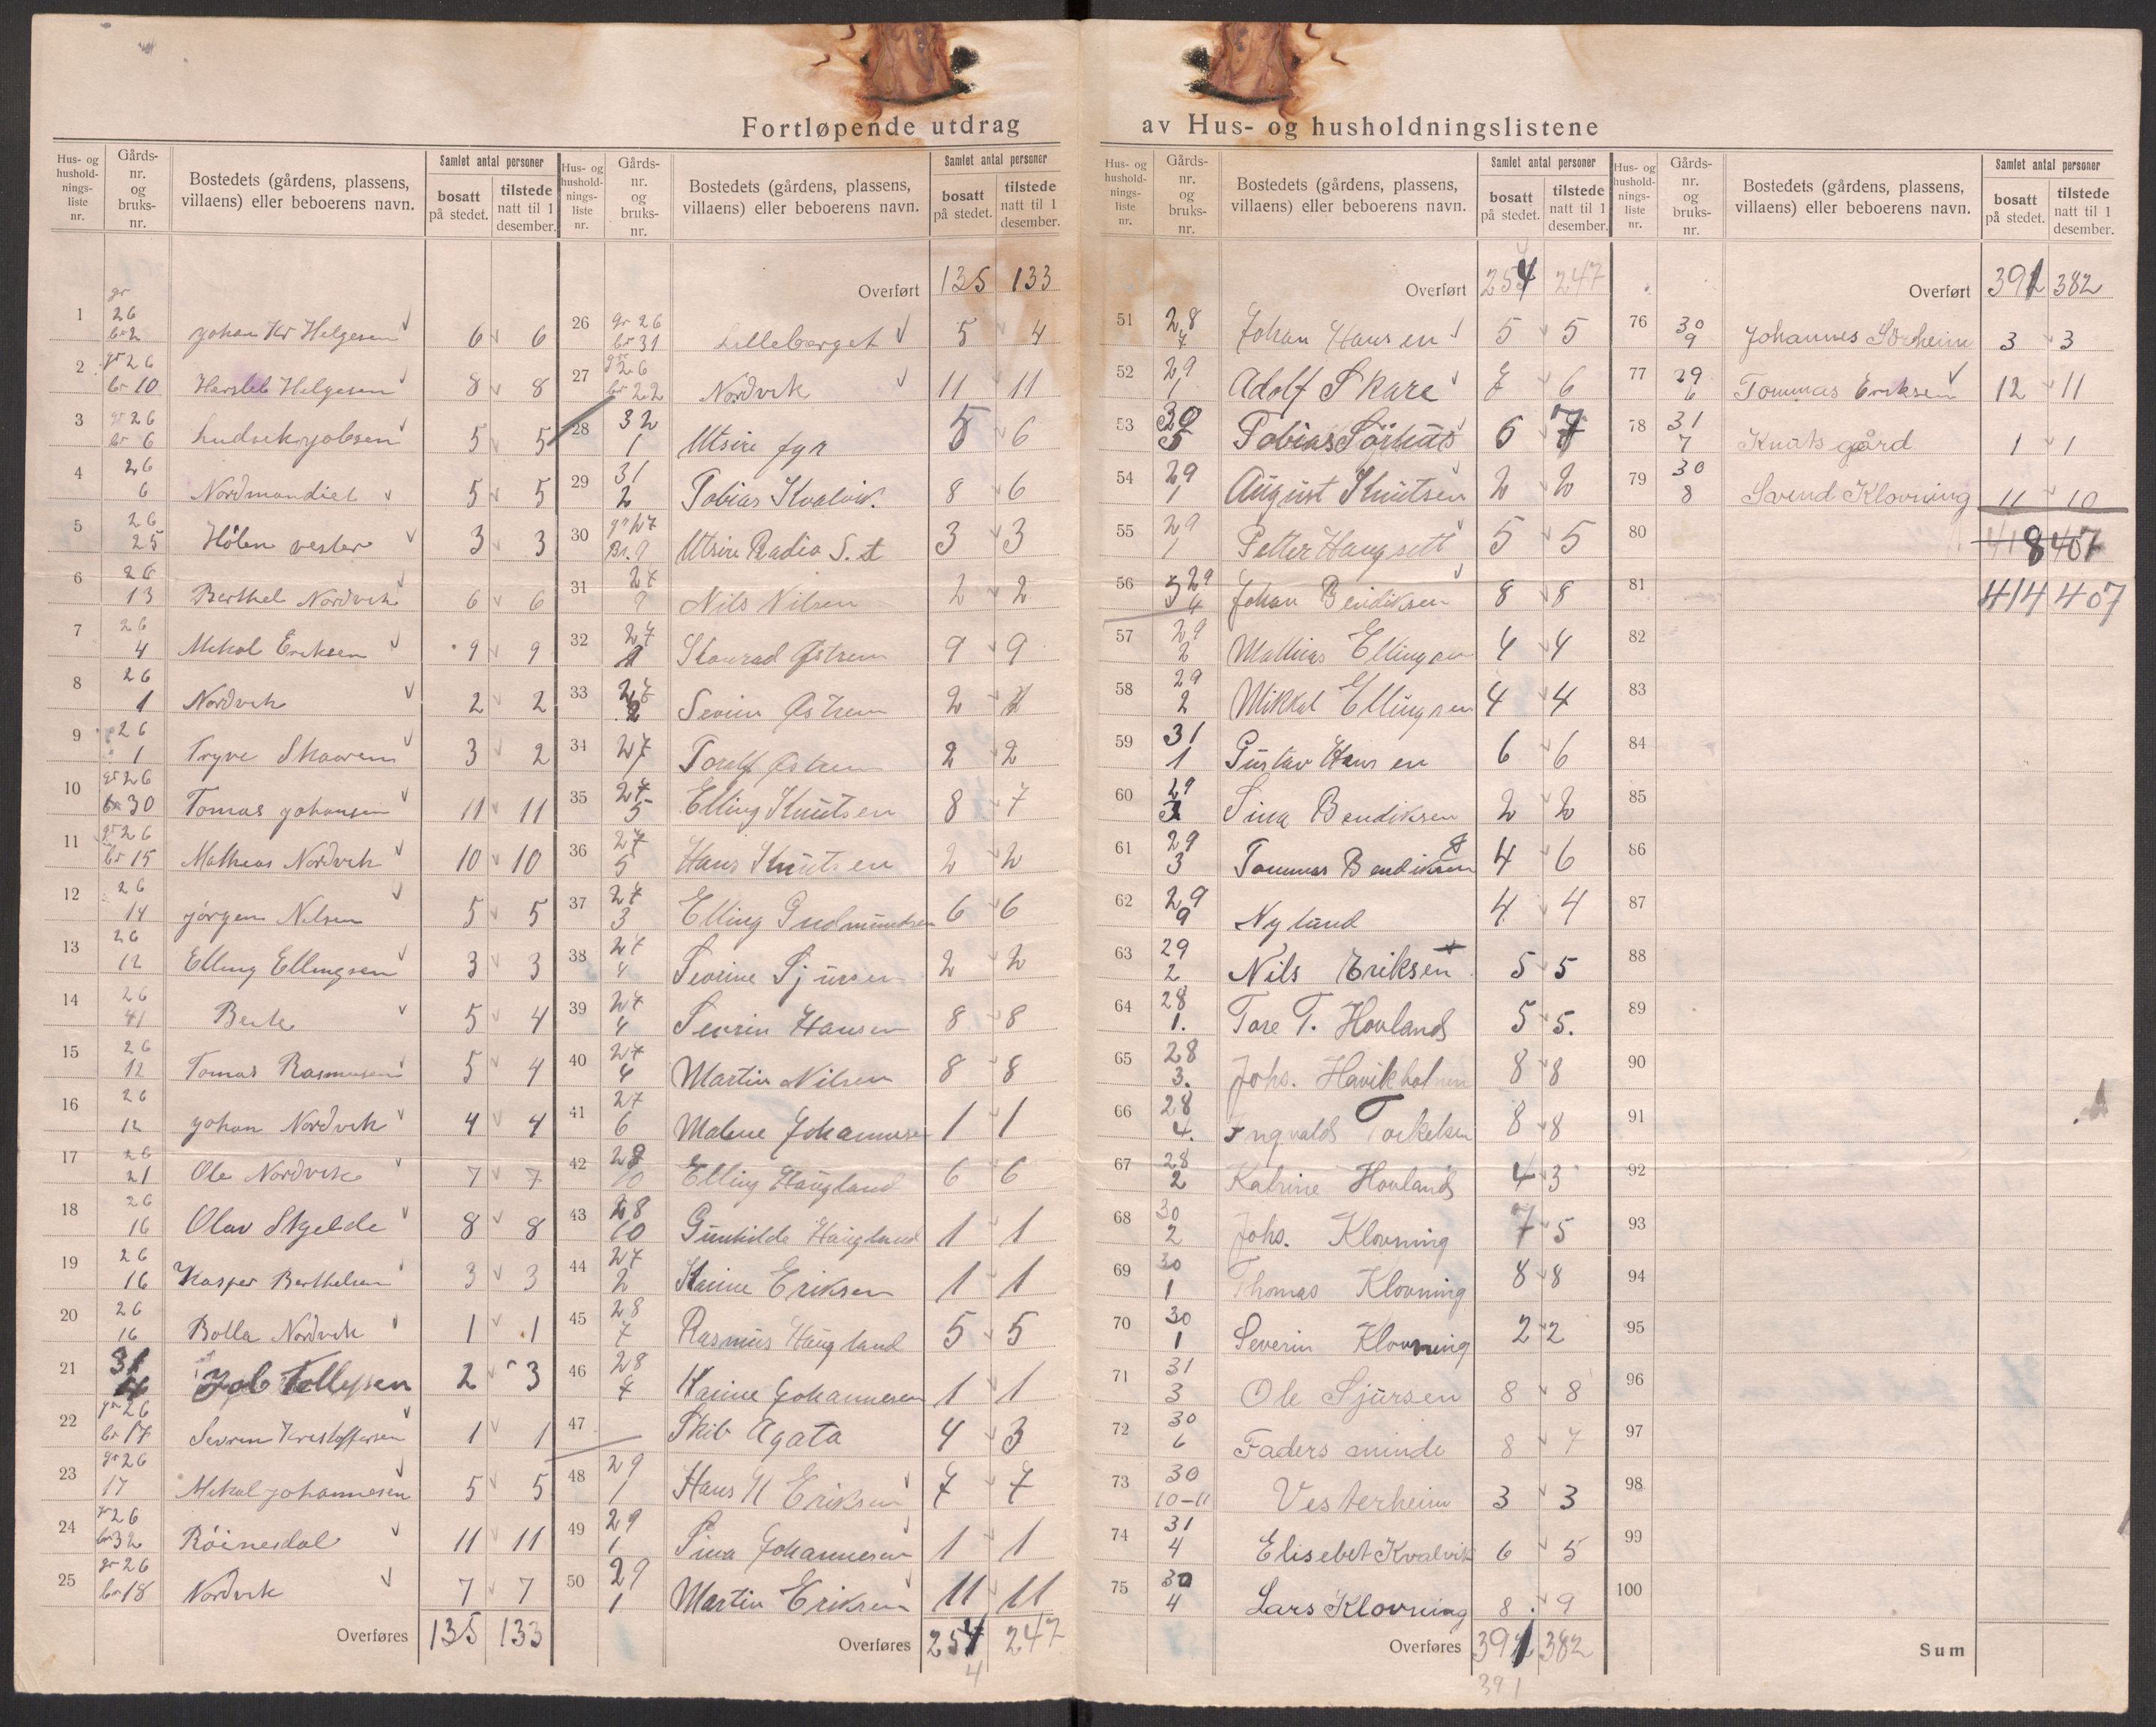 Fortløpende utdrag av Hus- og husholdningslistene
Hus- og hushold-nings-liste nr. Gårds-nr. og bruks-nr. Bostedets (gårdens, plassens, villaens) eller beboerens navn. Samlet antal personer bosatt på stedet. tilstede natt til 1 desember.
1 gr 26 br 2 Johan Kr Helgesen 6 6
2 gr 26 br 10 Harsleb Helgesen 8 8
3 gr 26 br 6 5 5
4 26 6 Nordmandiet 5 5
5 26 25 Hølen vester 3 3
6 26 13 Berthel Nordvik 6 6
7 26 4 Mikal Eriksen 9 9
8 26 1 Nordvik 2 2
9 26 1 Tryve Skaarem 3 2
10 gr 26 br 30 Tomas Johansen 11 11
11 gr 26 br 15 Mathias Nordvik 10 10
12 26 14 Jörgen Nilsen 5 5
13 26 12 Elling Ellingsen 3 3
14 26 41 5 4
15 26 12 Tomas Rasmusen 5 4
16 26 12 Johan Nordvik 4 4
17 26 21 Ole Nordvik 7 7
18 26 16 Olav Skjelde 8 8
19 26 16 Kasper Berthelsen 3 3
20 26 16 Bolla Nordvik 1 1
21 31 Job Tollefsen 2 3
22 gr 26 br 17 Sevrin Kristoffersen 1 1
23 gr 26 17 Mikal Johannesen 5 5
24 gr 26 br 32 Röinesdal 11 11
25 gr 26 br 18 Nordvik 7 7
Overføres 135 133
Hus- og hushold-nings-liste nr. Gårds-nr. og bruks-nr. Bostedets (gårdens, plassens, villaens) eller beboerens navn. Samlet antal personer bosatt på stedet. tilstede natt til 1 desember.
Overført 135 133
26 gr 26 br 31 Lilleberget 5 4
27 gr 26 br 22 Nordvik 11 11
28 32 1 Utsire fyr 5 6
29 31 2 Tobias Kvalvik. 8 6
30 gr 27 Br. 9 Utsire Radio S.t 3 3
31 27 9 Nils Nilsen 2 2
32 27 Konrad Østrem 9 9
33 27 2 Sevrin Østrem 2
34 27 1 Torulf Østrem 2 2
35 27 5 Elling Knutsen 8 7
36 27 5 Hans Knutsen 2 2
37 27 3 Elling Gudmundsen 6 6
38 27 4 Sevrine Sjursen 2 2
39 27 4 Sevrin Hansen 8 8
40 27 4 Martin Nilsen 8 8
41 27 6 Malene Johannesen 1 1
42 28 10 Elling Haugland 6 6
43 28 10 Gunhilde Haugland 1 1
44 27 2 Karine Eriksen 1 1
45 28 7 Rasmus Haugland 5 5
46 28 7 Karine Johannesen 1 1
47 Skib Agata 4 3
48 29 1 Hans H Eriksen 7 7
49 29 1 Sina Johannesen 1 1
50 29 1 Martin Eriksen 11 11
Overføres 254 247
4
Hus- og hushold-nings-liste nr. Gårds-nr. og bruks-nr. Bostedets (gårdens, plassens, villaens) eller beboerens navn. Samlet antal personer bosatt på stedet. tilstede natt til 1 desember.
Overført 254 247
51 28 7 Johan Hansen 5 5
52 29 1 Adolf Skare 7 6
53 30 5 Tobias Sørhus 6 7
54 29 1 August Knutsen 2 2
55 29 1 Petter Haugsett 5 5
56 29 4 Johan Bendiksen 8 8
57 29 2 Mathias Ellingsen 4 4
58 29 2 Mikkal Ellingsen 4 4
59 31 1 Gustav Hansen 6 6
60 29 3 Sina Bendiksen 2 2
61 29 3 Tommas Bendiksen 4 6
62 29 9 Nyland 4 4
63 29 2 Nils Eriksen 5 5
64 28 1. Tore T. Hovland 5 5.
65 28 3. Johs. Havikholmen 8 8
66 28 4. Ingvald Torkelsen 8 8
67 28 2 Katrine Hovland 4 3
68 30 2 Johs. Klovning 7 5
69 30 1 Thomas Klovning 8 8
70 30 1 Severin Klovning 2 2
71 31 3 Ole Sjursen 8 8
72 30 6 Faders minde 8 7
73 30 10-11 Vesterheim 3 3
74 31 4 Elisebet Kvalvik 6 5
75 30 4 Lars Klovning 8 9
Overføres 391 382
391
Hus- og hushold-nings-liste nr. Gårds-nr. og bruks-nr. Bostedets (gårdens, plassens, villaens) eller beboerens navn. Samlet antal personer bosatt på stedet. tilstede natt til 1 desember.
Overført 391 382
76 30 9 Johannes Sørheim 3 3
77 29 6 Tommas Eriksen 12 11
78 31 7 Knuts gård 1 1
79 30 8 Svend Klovning 11 10
80 418 407
81 414 407
82
83
84
85
86
87
88
89
90
91
92
93
94
95
96
97
98
99
100
Sum